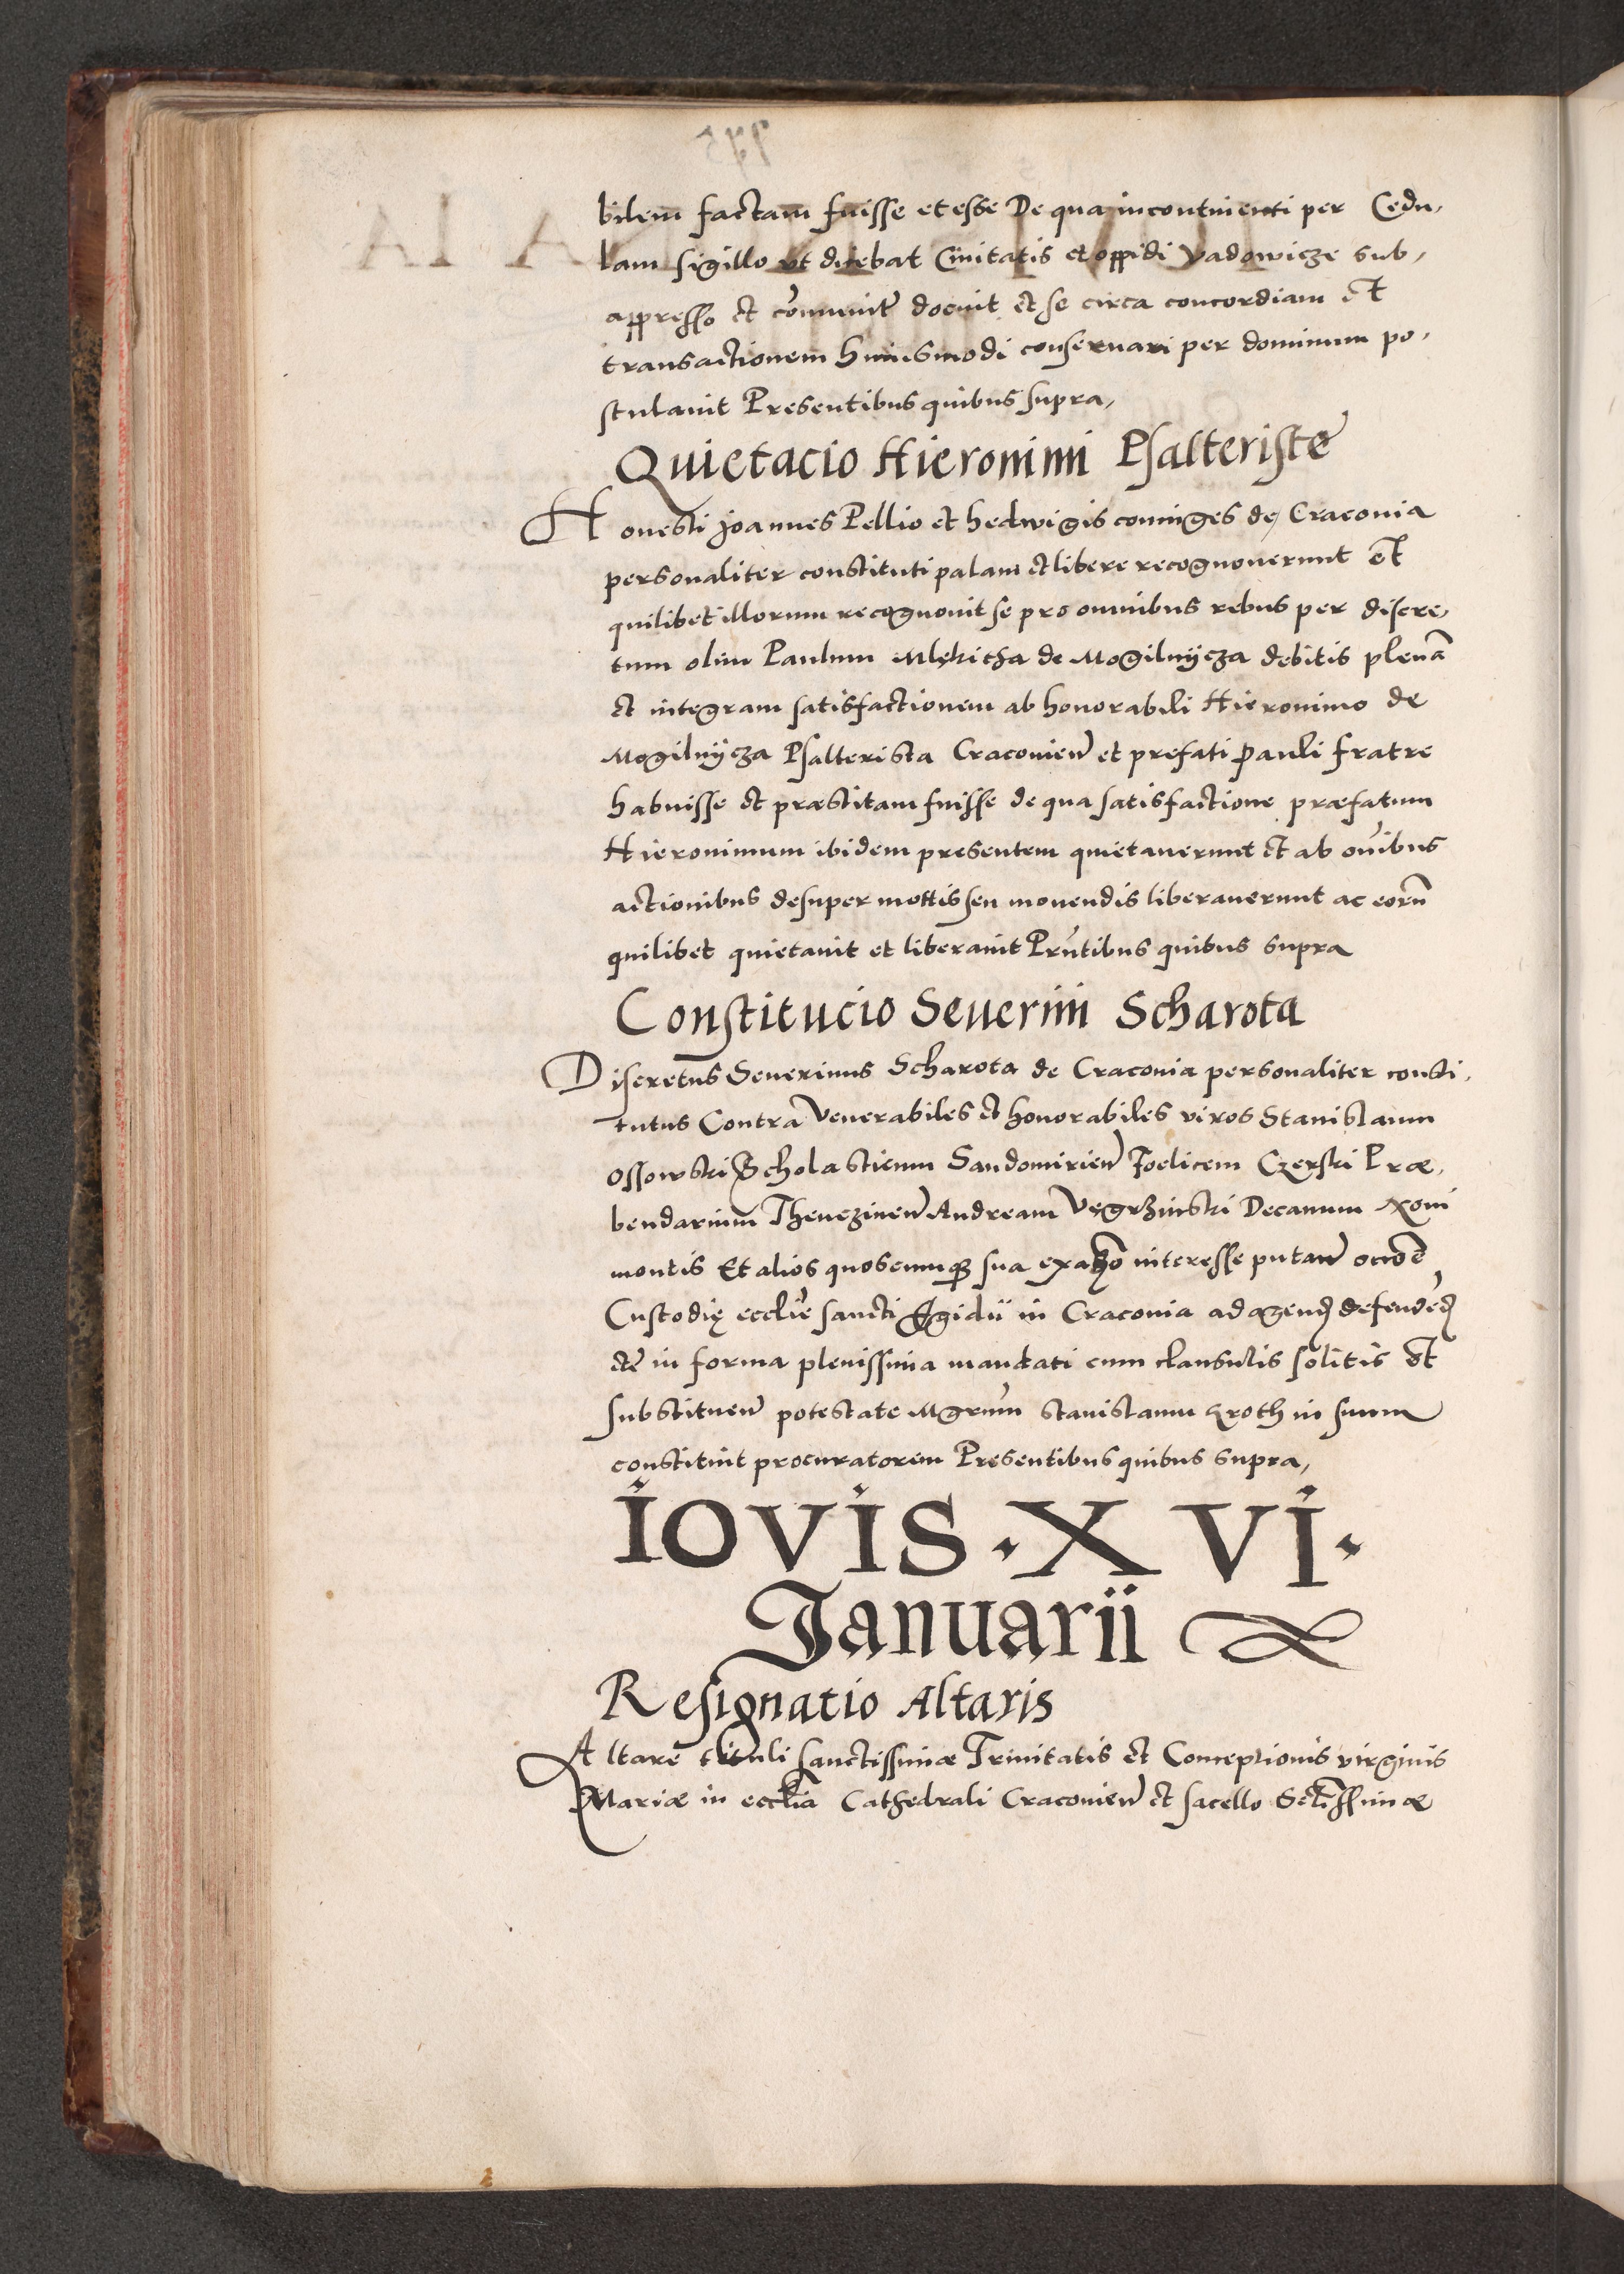 bilem factam fuisse et esse De qua incontinenti per Cedu,
lam sigillo ut dicebat Civitatis et oppidi Vadowicze sub,
appresso et com̄unit̄ docuit et se circa concordiam et
transactionem huiusmodi conservari per dominum po,
stulavit Presentibus quibus supra,
Quietacio Hieronimi Psalteriste
Honesti Joannes Pellio et hedwigis coniuges de Cracovia
personaliter constituti palam et libere recognoverunt et
quilibet illorum recognovit se pro omnibus rebus per discre,
tum olim Paulum Mlękicza de Mogilnÿcza debitis plenā
et integram satisfactionem ab honorabili Hieronimo de
Mogilnÿcza Psalterista Cracovien̄ et prefati Pauli fratre
habuisse et præstitam fuisse de qua satisfactione præfatum
Hieronimum ibidem presentem quietaverunt et ab om̄ibus
actionibus desuper mottis seu movendis liberaverunt ac eorū
quilibet quietavit et liberavit Prn̄tibus quibus supra
Constitucio Severini Scharota
Discretus Severinus Scharota de Cracovia personaliter consti,
tutus Contra Venerabiles et honorabiles viros Stanislaum
Ossowski Scholasticum Sandomirien̄ Foelicem Czerski Præ,
bendarium Thenczinen̄ Andream Vęgrzinski Decanum Novi
montis Et alios quoscumq sua ex interesse putan̄ occōe
Custodię eccl̄ie sancti Egidii in Cracovia ad agend̄ defendēd̄
etc̄ in forma plenissima mandati cum clausulis solitis et
substituen̄ potestate Mgrūm Stanislaum Kroth in suum
constituit procuratorem Presentibus quibus supra,
IOVIS · XVI ·
Januarii
Resignatio Altaris
Altare tituli sanctissimæ Trinitatis et Conceptionis virginis
Mariæ in eccl̄ia Cathedrali Cracovien̄ et sacello Sctīssimæ